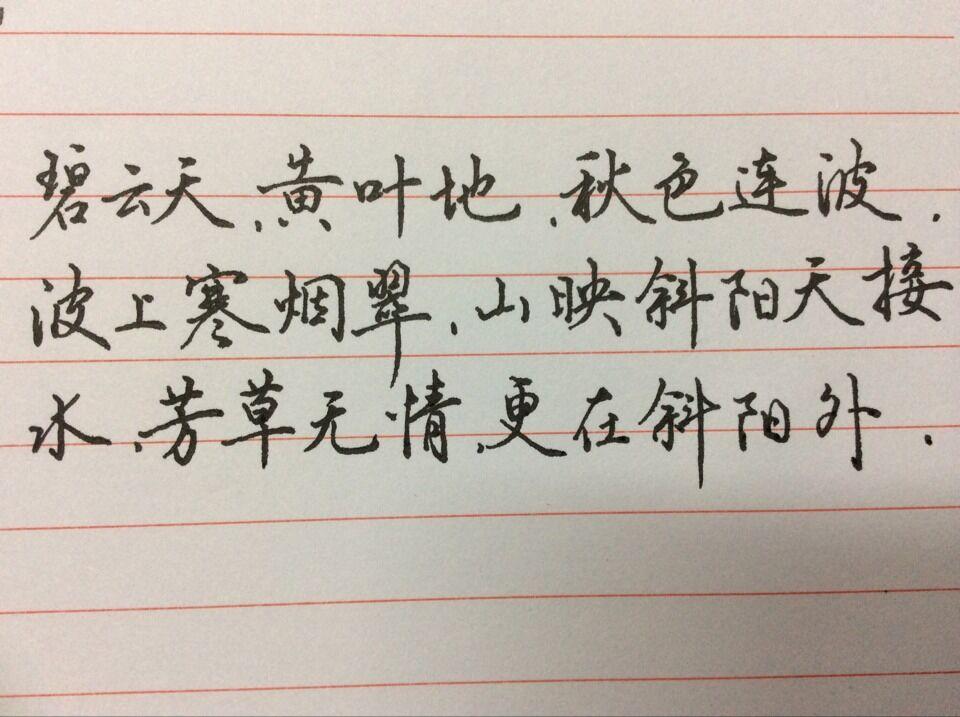 碧云天、黄叶地、秋色连波.
波上寒烟翠、山映斜阳天接
水、芳草无情、更在斜阳外.